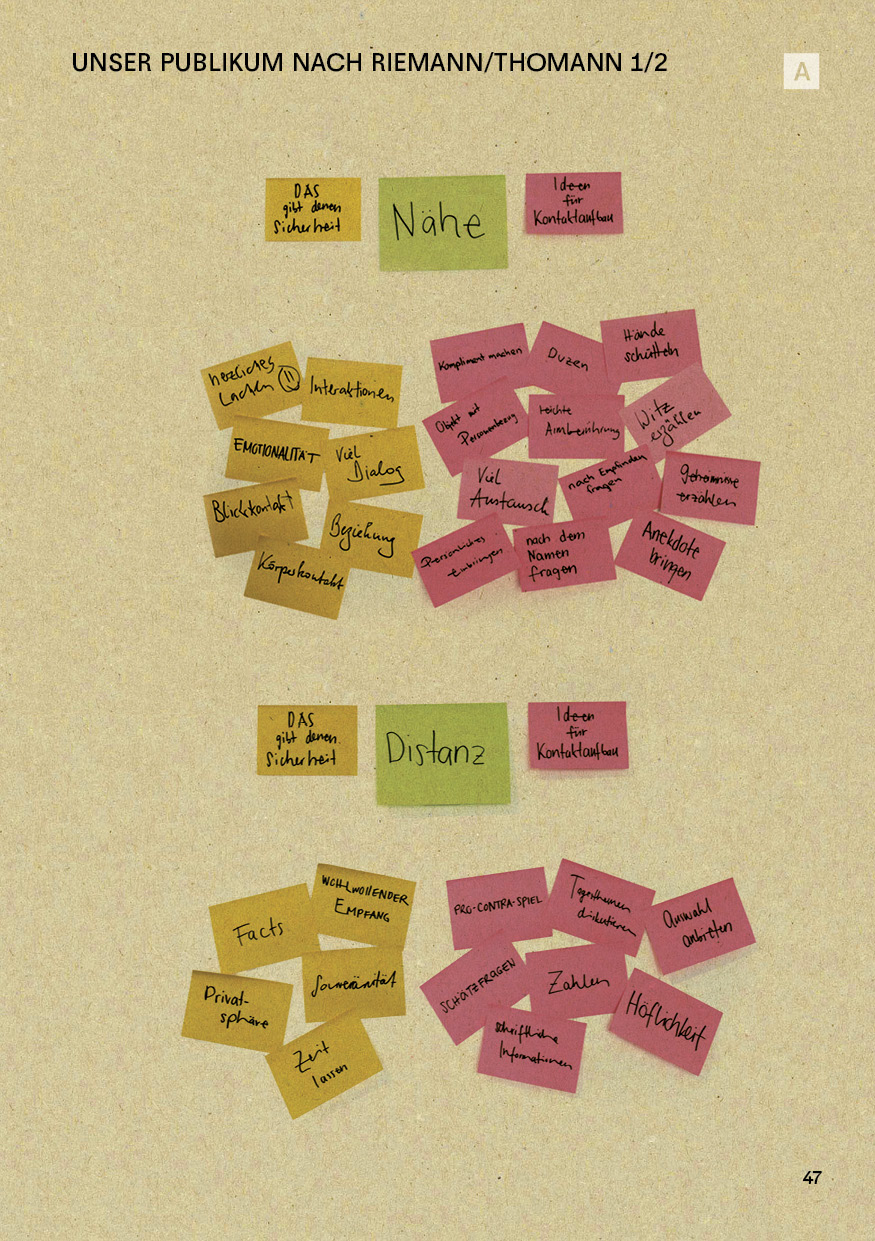 UNSER PUBLIKUM NACH RIEMANN/THOMANN 1/2
A
DAS
gibt denen
Sicherheit
Nähe
Ideen
für
Kontaktaufbau
herzliches
Lachen
Interaktionen
EMOTIONALITÄT
Viel
Dialog
Blickkontakt
Beziehung
Körperkontakt
Kompliment machen
Duzen
Hände
schütteln
Objekt mit
Personenbezug
leichte
Armberührung
Witz
erzählen
Viel
Austausch
nach Empfinden
fragen
Geheimnisse
erzählen
Persönliches
einbringen
nach dem
Namen
fragen
Anekdote
bringen
DAS
gibt denen
Sicherheit
Distanz
Ideen
für
Kontaktaufbau
Facts
WOHLWOLLENDER
EMPFANG
Privat-
sphäre
Souveränität
Zeit
lassen
PRO-CONTRA-SPIEL
Tagesthemen
diskutieren
Auswahl
anbieten
SCHÄTZFRAGEN
Zahlen
Höflichkeit
schriftliche
Informationen
47